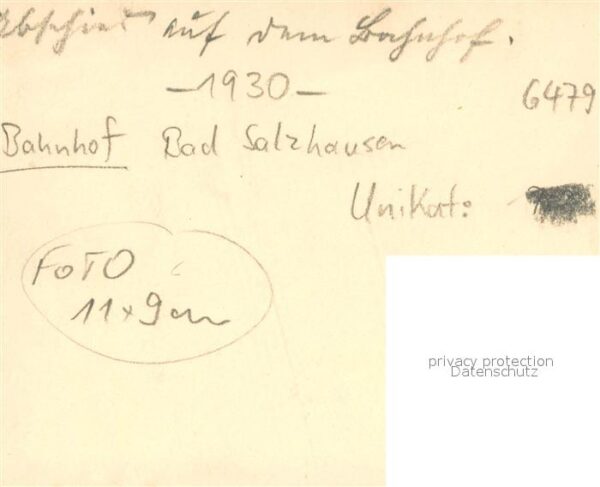 Abschied auf dem Bahnhof.
-1930-
6479
Bahnhof Bad Salzhausen
Unikat:
FOTO
11x9cm
privacy protection
Datenschutz